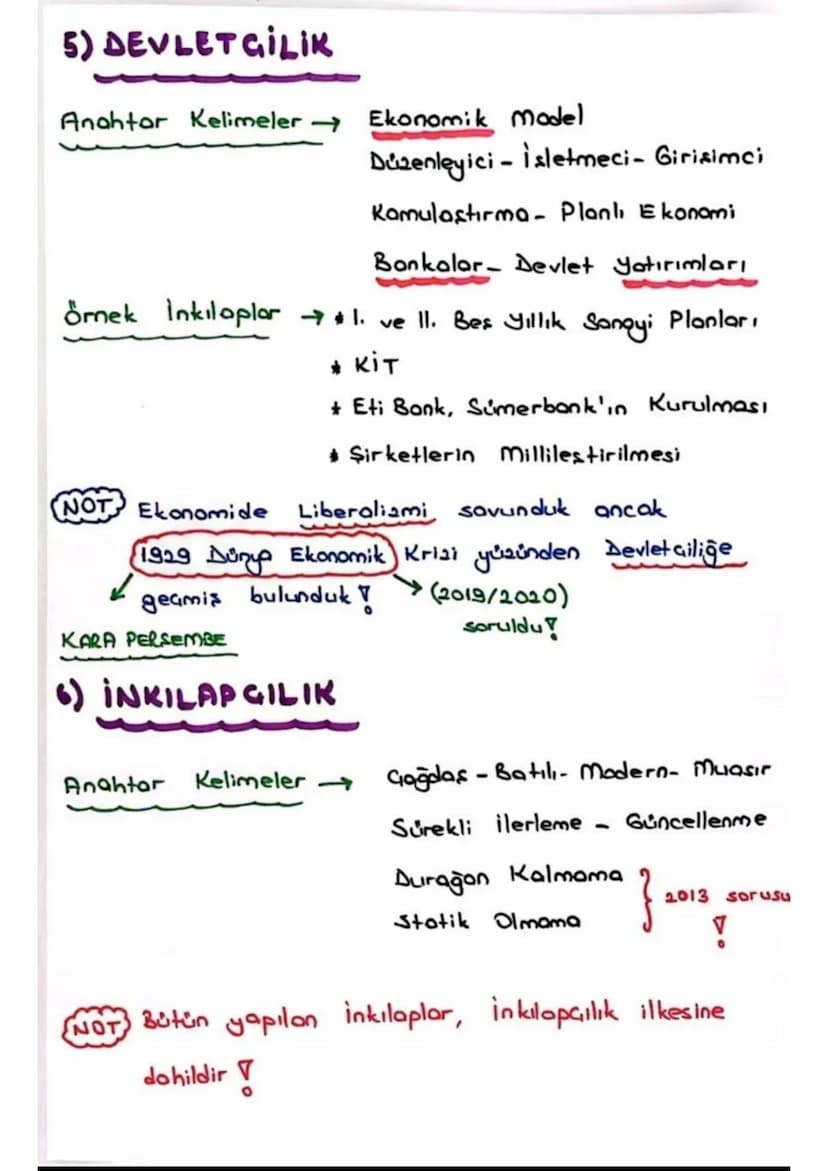 5) DEVLETÇİLİK
Anahtar Kelimeler → Ekonomik Model
Düzenleyici - İşletmeci - Girişimci
Kamulaştırma - Planlı Ekonomi
Bankalar - Devlet Yatırımları
Örnek İnkılaplar → * I. ve II. Beş Yıllık Sanayi Planları
* KİT
* Eti Bank, Sümerbank'ın Kurulması
* Şirketlerin Millileştirilmesi
NOT Ekonomide Liberalizmi savunduk ancak
1929 Dünya Ekonomik Krizi yüzünden Devletçiliğe
geçmiş bulunduk! → (2019/2020)
soruldu!
KARA PERŞEMBE
6) İNKILAPÇILIK
Anahtar Kelimeler → Çağdaş - Batılı - Modern - Muasır
Sürekli ilerleme - Güncellenme
Durağan Kalmama
Statik Olmama } 2013 sorusu !
NOT Bütün yapılan inkılaplar, inkılapçılık ilkesine
dahildir !